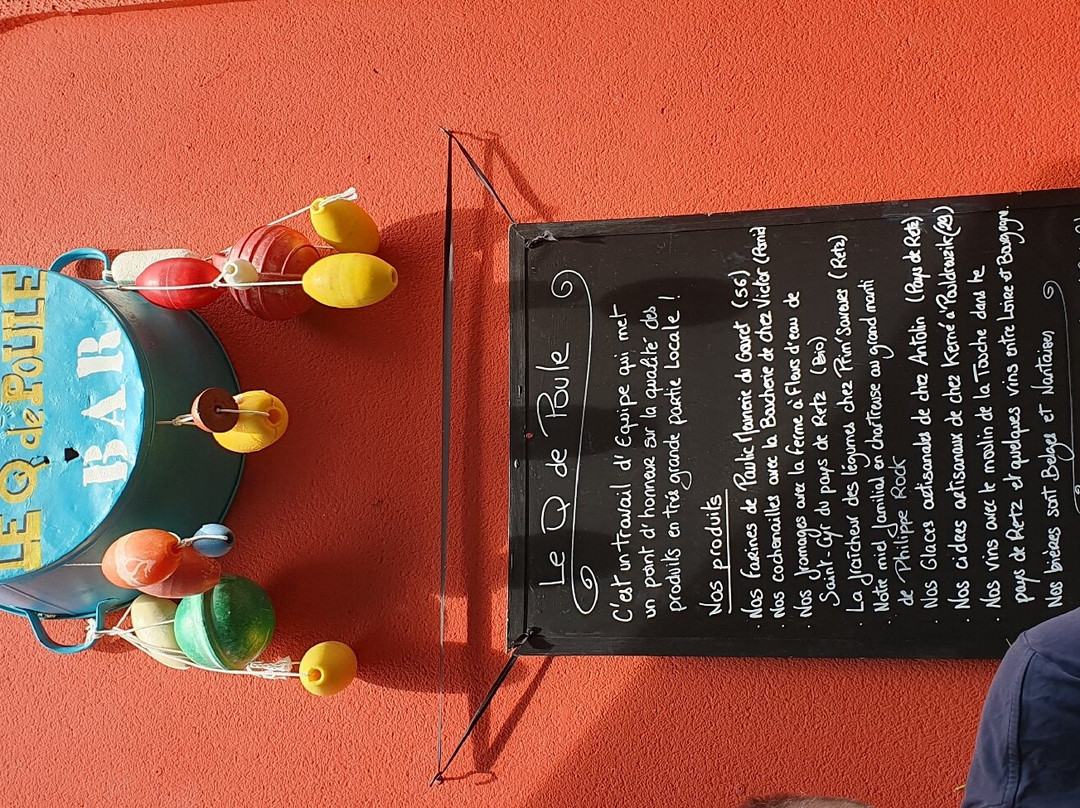 LE Q de POULE
BAR
Le Q de Poule
C'est un travail d'Equipe qui met
un point d'honneur sur la qualité des
produits en très grande partie Locale !
Nos produits
Nos farines de Paulic Minoterie du Gouret (56)
Nos cochonailles avec la Boucherie de chez Victor
Nos fromages avec la ferme à Fleurs d'eau de
Saint-Cyr du pays de Retz (Bio)
La fraîcheur des légumes chez Prim'Saveurs (Retz)
Notre miel familial en chartreuse au grand manti
de Philippe Rock
Nos Glaces artisanales de chez Antolin (Pays de Retz)
Nos cidres artisanaux de chez Kerné à Pouldreuzik (29)
Nos vins avec le moulin de la Touche dans le
pays de Retz et quelques vins entre Loire et Bourgogne.
Nos bières sont Belges et Nantaises